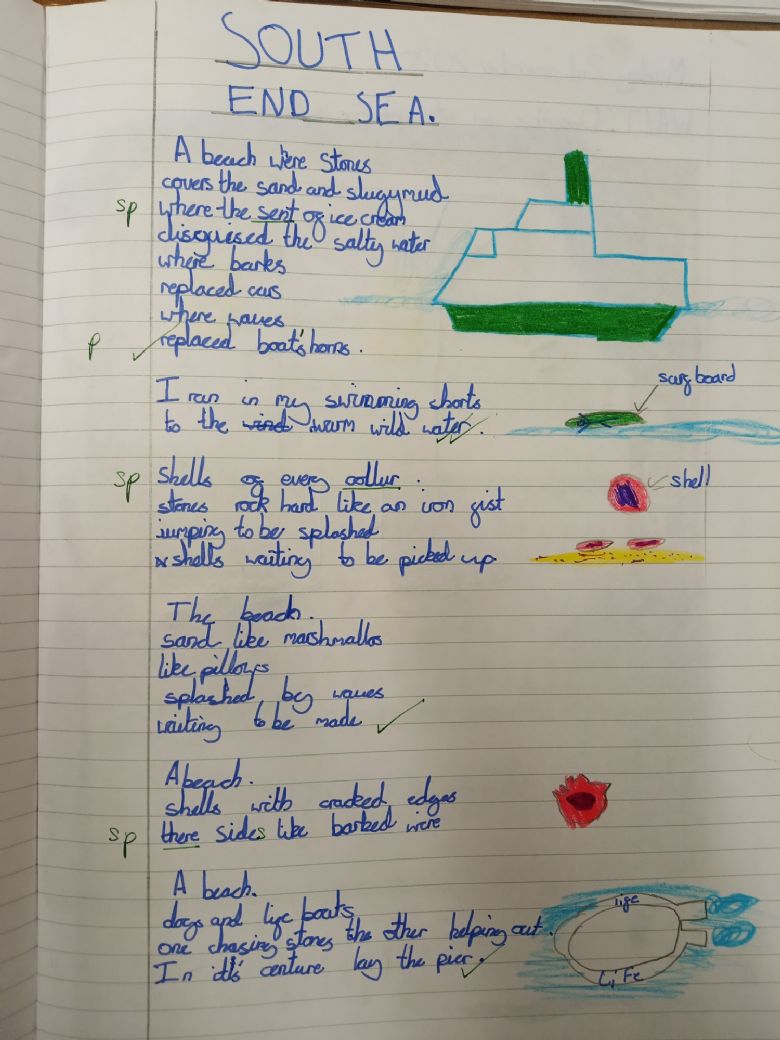 SOUTH
END SEA.
A beach were stones
covers the sand and slugymud
sp where the sent of ice cream
disguised the salty water
where barks
replaced cars
where waves
p replaced boat's horns.
I ran in my swimming shorts
to the wind warm wild water.
surf board
sp shells of every collur.
shell
stones rock hard like an iron fist
jumping to be splashed
shells waiting to be picked up
The beach.
sand like marshmallos
like pillows
splashed by waves
waiting to be made
A beach.
shells with cracked edges
sp there sides like barbed were
A beach.
dogs and life boats
one chasing stones the other helping out.
In it's centure lay the pier.
life
LiFe